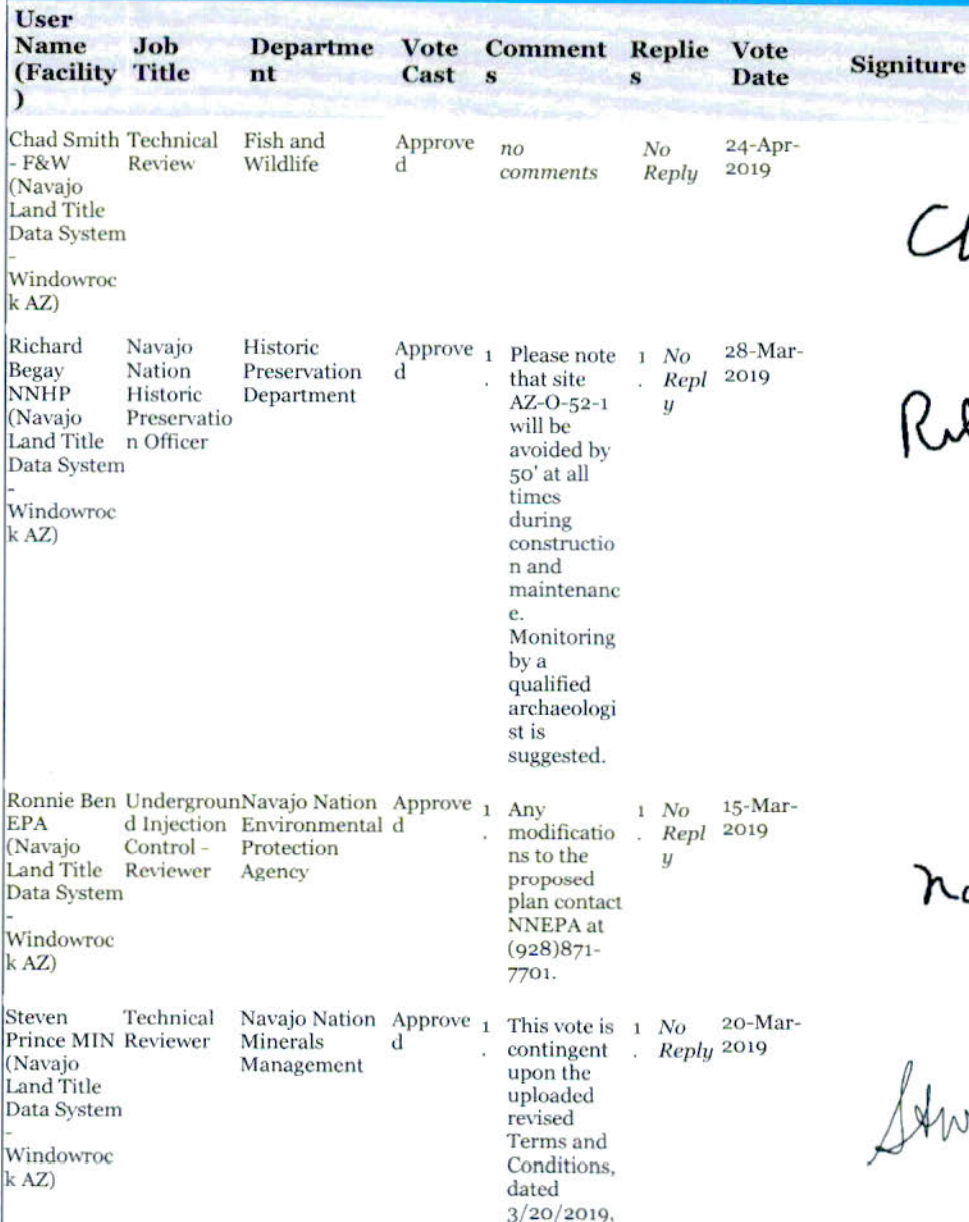 User
Name
(Facility
)
Job
Title
Departme
nt
Vote
Cast
Comment
s
Replie
s
Vote
Date
Signiture
Chad Smith
- F&W
(Navajo
Land Title
Data System
-
Windowroc
k AZ)
Technical
Review
Fish and
Wildlife
Approve
d
no
comments
No
Reply
24-Apr-
2019
Richard
Begay
NNHP
(Navajo
Land Title
Data System
-
Windowroc
k AZ)
Navajo
Nation
Historic
Preservatio
n Officer
Historic
Preservation
Department
Approve
d
1
.
Please note
that site
AZ-O-52-1
will be
avoided by
50' at all
times
during
constructio
n and
maintenanc
e.
Monitoring
by a
qualified
archaeologi
st is
suggested.
1
.
No
Repl
y
28-Mar-
2019
Ronnie Ben
EPA
(Navajo
Land Title
Data System
-
Windowroc
k AZ)
Undergroun
d Injection
Control -
Reviewer
Navajo Nation
Environmental
Protection
Agency
Approve
d
1
.
Any
modificatio
ns to the
proposed
plan contact
NNEPA at
(928)871-
7701.
1
.
No
Repl
y
15-Mar-
2019
Steven
Prince MIN
(Navajo
Land Title
Data System
-
Windowroc
k AZ)
Technical
Reviewer
Navajo Nation
Minerals
Management
Approve
d
1
.
This vote is
contingent
upon the
uploaded
revised
Terms and
Conditions,
dated
3/20/2019,
1
.
No
Reply
20-Mar-
2019